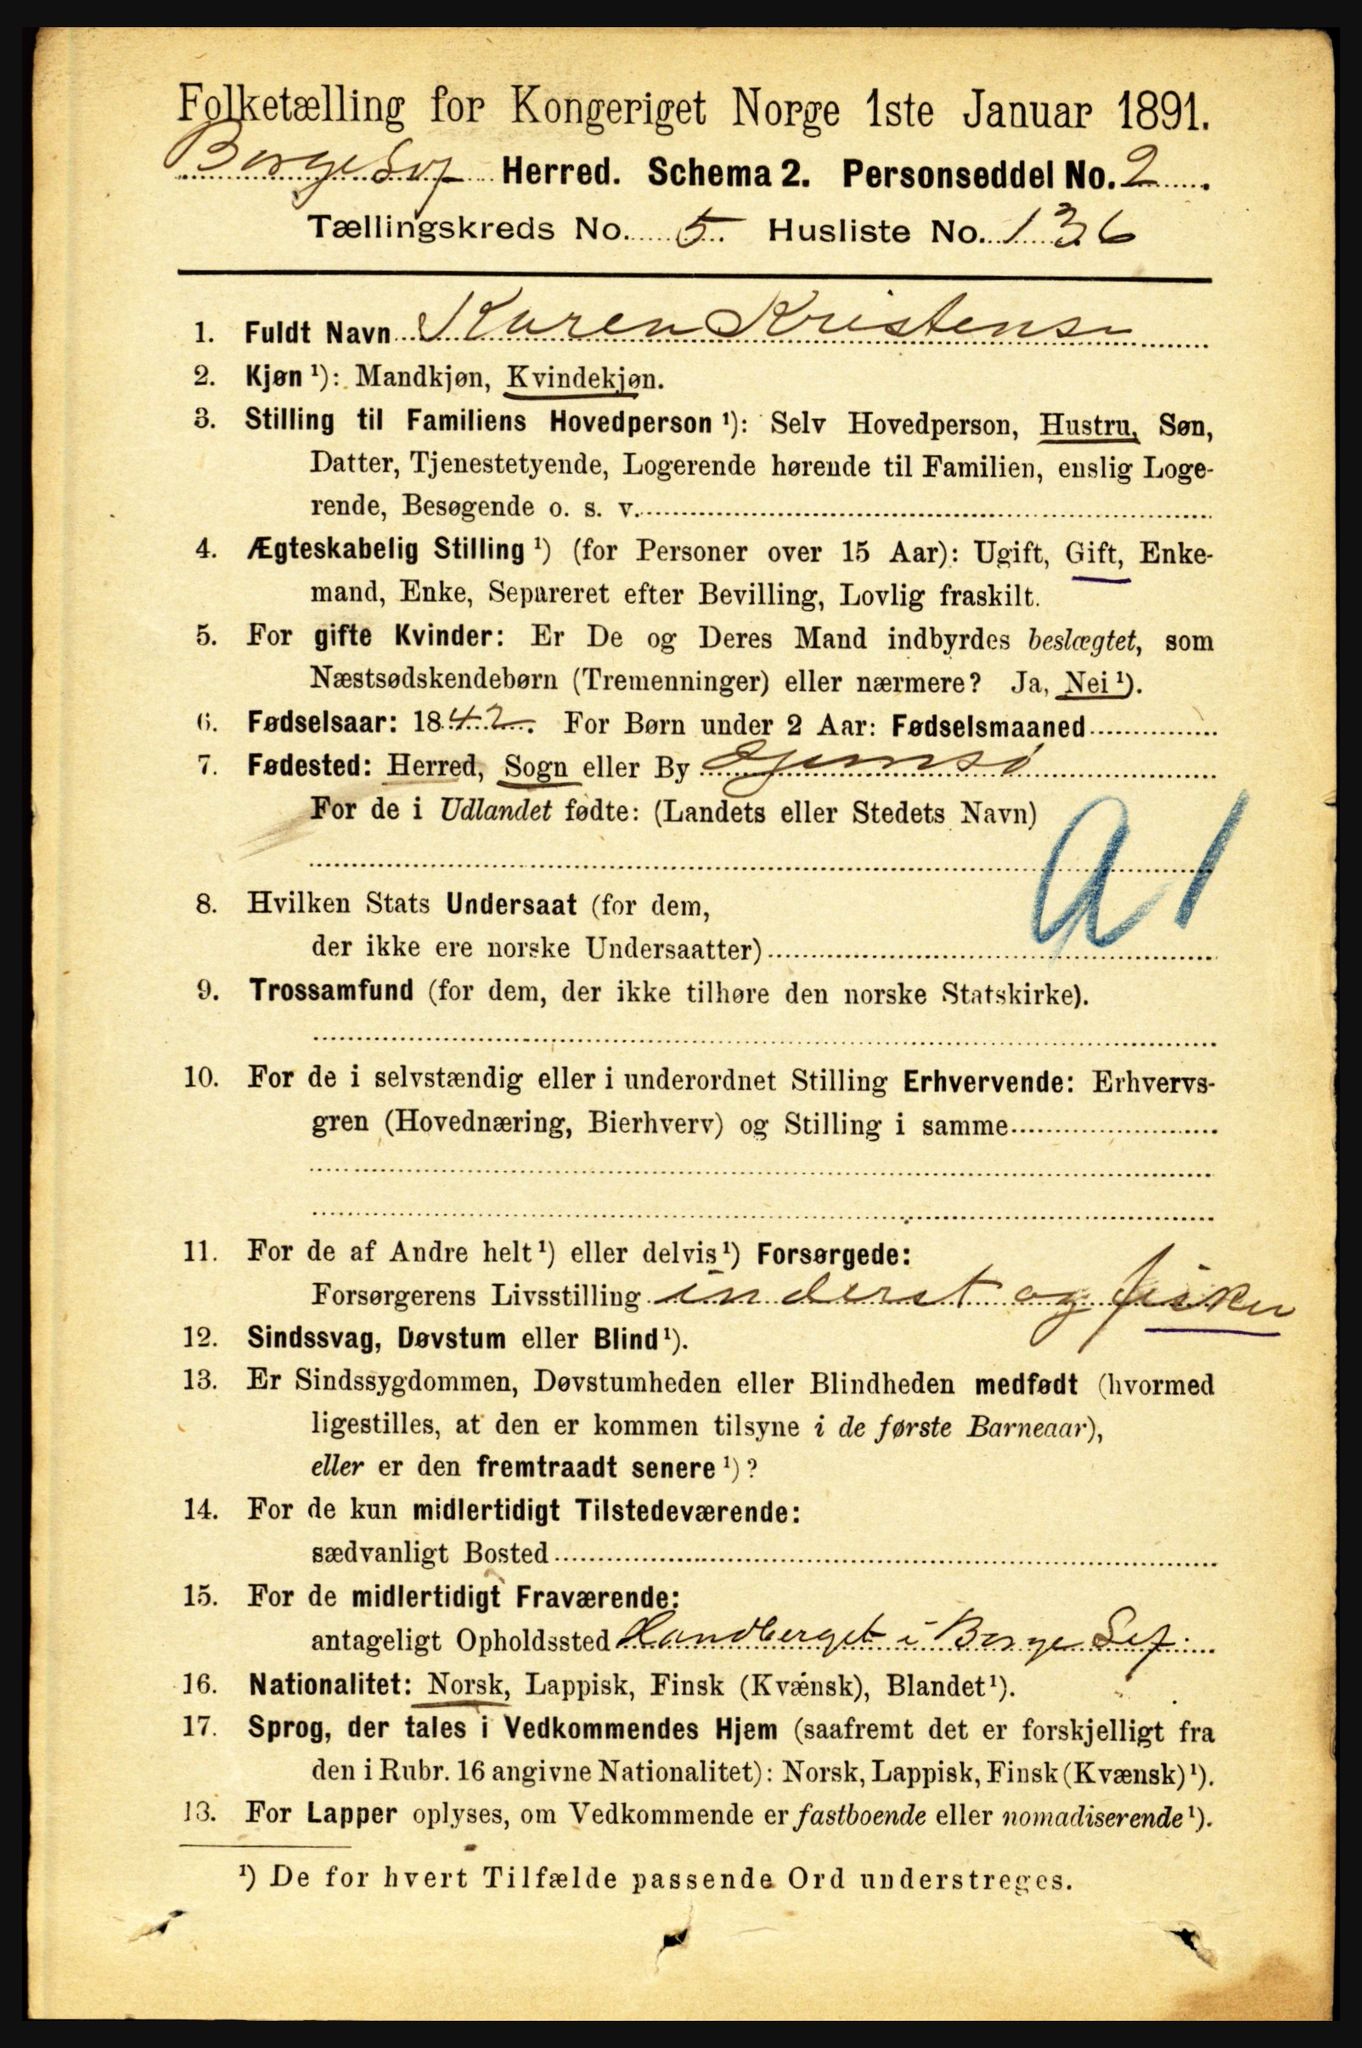 Folketælling for Kongeriget Norge 1ste Januar 1891.
Borge Lof Herred. Schema 2. Personseddel No. 2
Tællingskreds No. 5. Husliste No. 136
1. Fuldt Navn Karen Kristense
2. Kjøn ¹): Mandkjøn, Kvindekjøn.
3. Stilling til Familiens Hovedperson ¹): Selv Hovedperson, Hustru, Søn,
Datter, Tjenestetyende, Logerende hørende til Familien, enslig Loge-
rende, Besøgende o. s. v.
4. Ægteskabelig Stilling ¹) (for Personer over 15 Aar): Ugift, Gift, Enke-
mand, Enke, Separeret efter Bevilling, Lovlig fraskilt.
5. For gifte Kvinder: Er De og Deres Mand indbyrdes beslægtet, som
Næstsødskendebørn (Tremenninger) eller nærmere? Ja, Nei ¹).
6. Fødselsaar: 1842. For Børn under 2 Aar: Fødselsmaaned
7. Fødested: Herred, Sogn eller By Gjimsø
For de i Udlandet fødte: (Landets eller Stedets Navn)
a1
8. Hvilken Stats Undersaat (for dem,
der ikke ere norske Undersaatter)
9. Trossamfund (for dem, der ikke tilhøre den norske Statskirke).
10. For de i selvstændig eller i underordnet Stilling Erhvervende: Erhvervs-
gren (Hovednæring, Bierhverv) og Stilling i samme
11. For de af Andre helt ¹) eller delvis ¹) Forsørgede:
Forsørgerens Livsstilling inderst og fisker
12. Sindssvag, Døvstum eller Blind ¹).
13. Er Sindssygdommen, Døvstumheden eller Blindheden medfødt (hvormed
ligestilles, at den er kommen tilsyne i de første Barneaar),
eller er den fremtraadt senere ¹)?
14. For de kun midlertidigt Tilstedeværende:
sædvanligt Bosted
15. For de midlertidigt Fraværende:
antageligt Opholdssted Handberget i Borge Lof
16. Nationalitet: Norsk, Lappisk, Finsk (Kvænsk), Blandet ¹).
17. Sprog, der tales i Vedkommendes Hjem (saafremt det er forskjelligt fra
den i Rubr. 16 angivne Nationalitet): Norsk, Lappisk, Finsk (Kvænsk) ¹).
13. For Lapper oplyses, om Vedkommende er fastboende eller nomadiserende ¹).
¹) De for hvert Tilfælde passende Ord understreges.